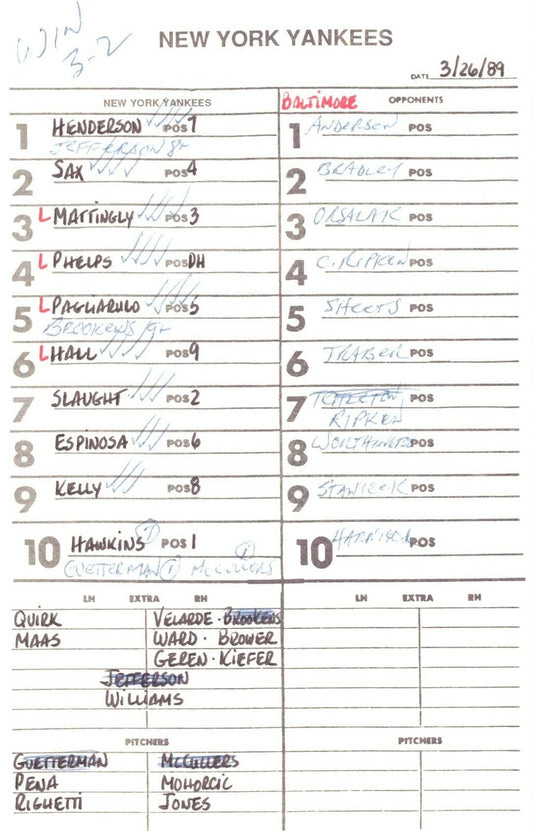 WIN
3-2
NEW YORK YANKEES
DATE 3/26/89
NEW YORK YANKEES
1 HENDERSON POS 7
JEFFERSON 8
2 SAX POS 4
3 L MATTINGLY POS 3
4 L PHELPS POS DH
5 L PAGLIARULO POS 5
BROOKENS
6 L HALL POS 9
7 SLAUGHT POS 2
8 ESPINOSA POS 6
9 KELLY POS 8
10 HAWKINS 7 POS 1
GUETTERMAN 1 McCULLERS 1
BALTIMORE OPPONENTS
1 ANDERSON POS
2 BRADLEY POS
3 ORSALAK POS
4 C. RIPKEN POS
5 SHEETS POS
6 TRABER POS
7 TETTLETON POS
RIPKEN
8 WORTHINGTON POS
9 STANICEK POS
10 HARNISCH POS
LH EXTRA RH
QUIRK VELARDE · BROOKENS
MAAS WARD · BROWER
GEREN · KIEFER
JEFFERSON
WILLIAMS
PITCHERS
GUETTERMAN McCULLERS
PENA MOHORCIC
RIGHETTI JONES
LH EXTRA RH
PITCHERS